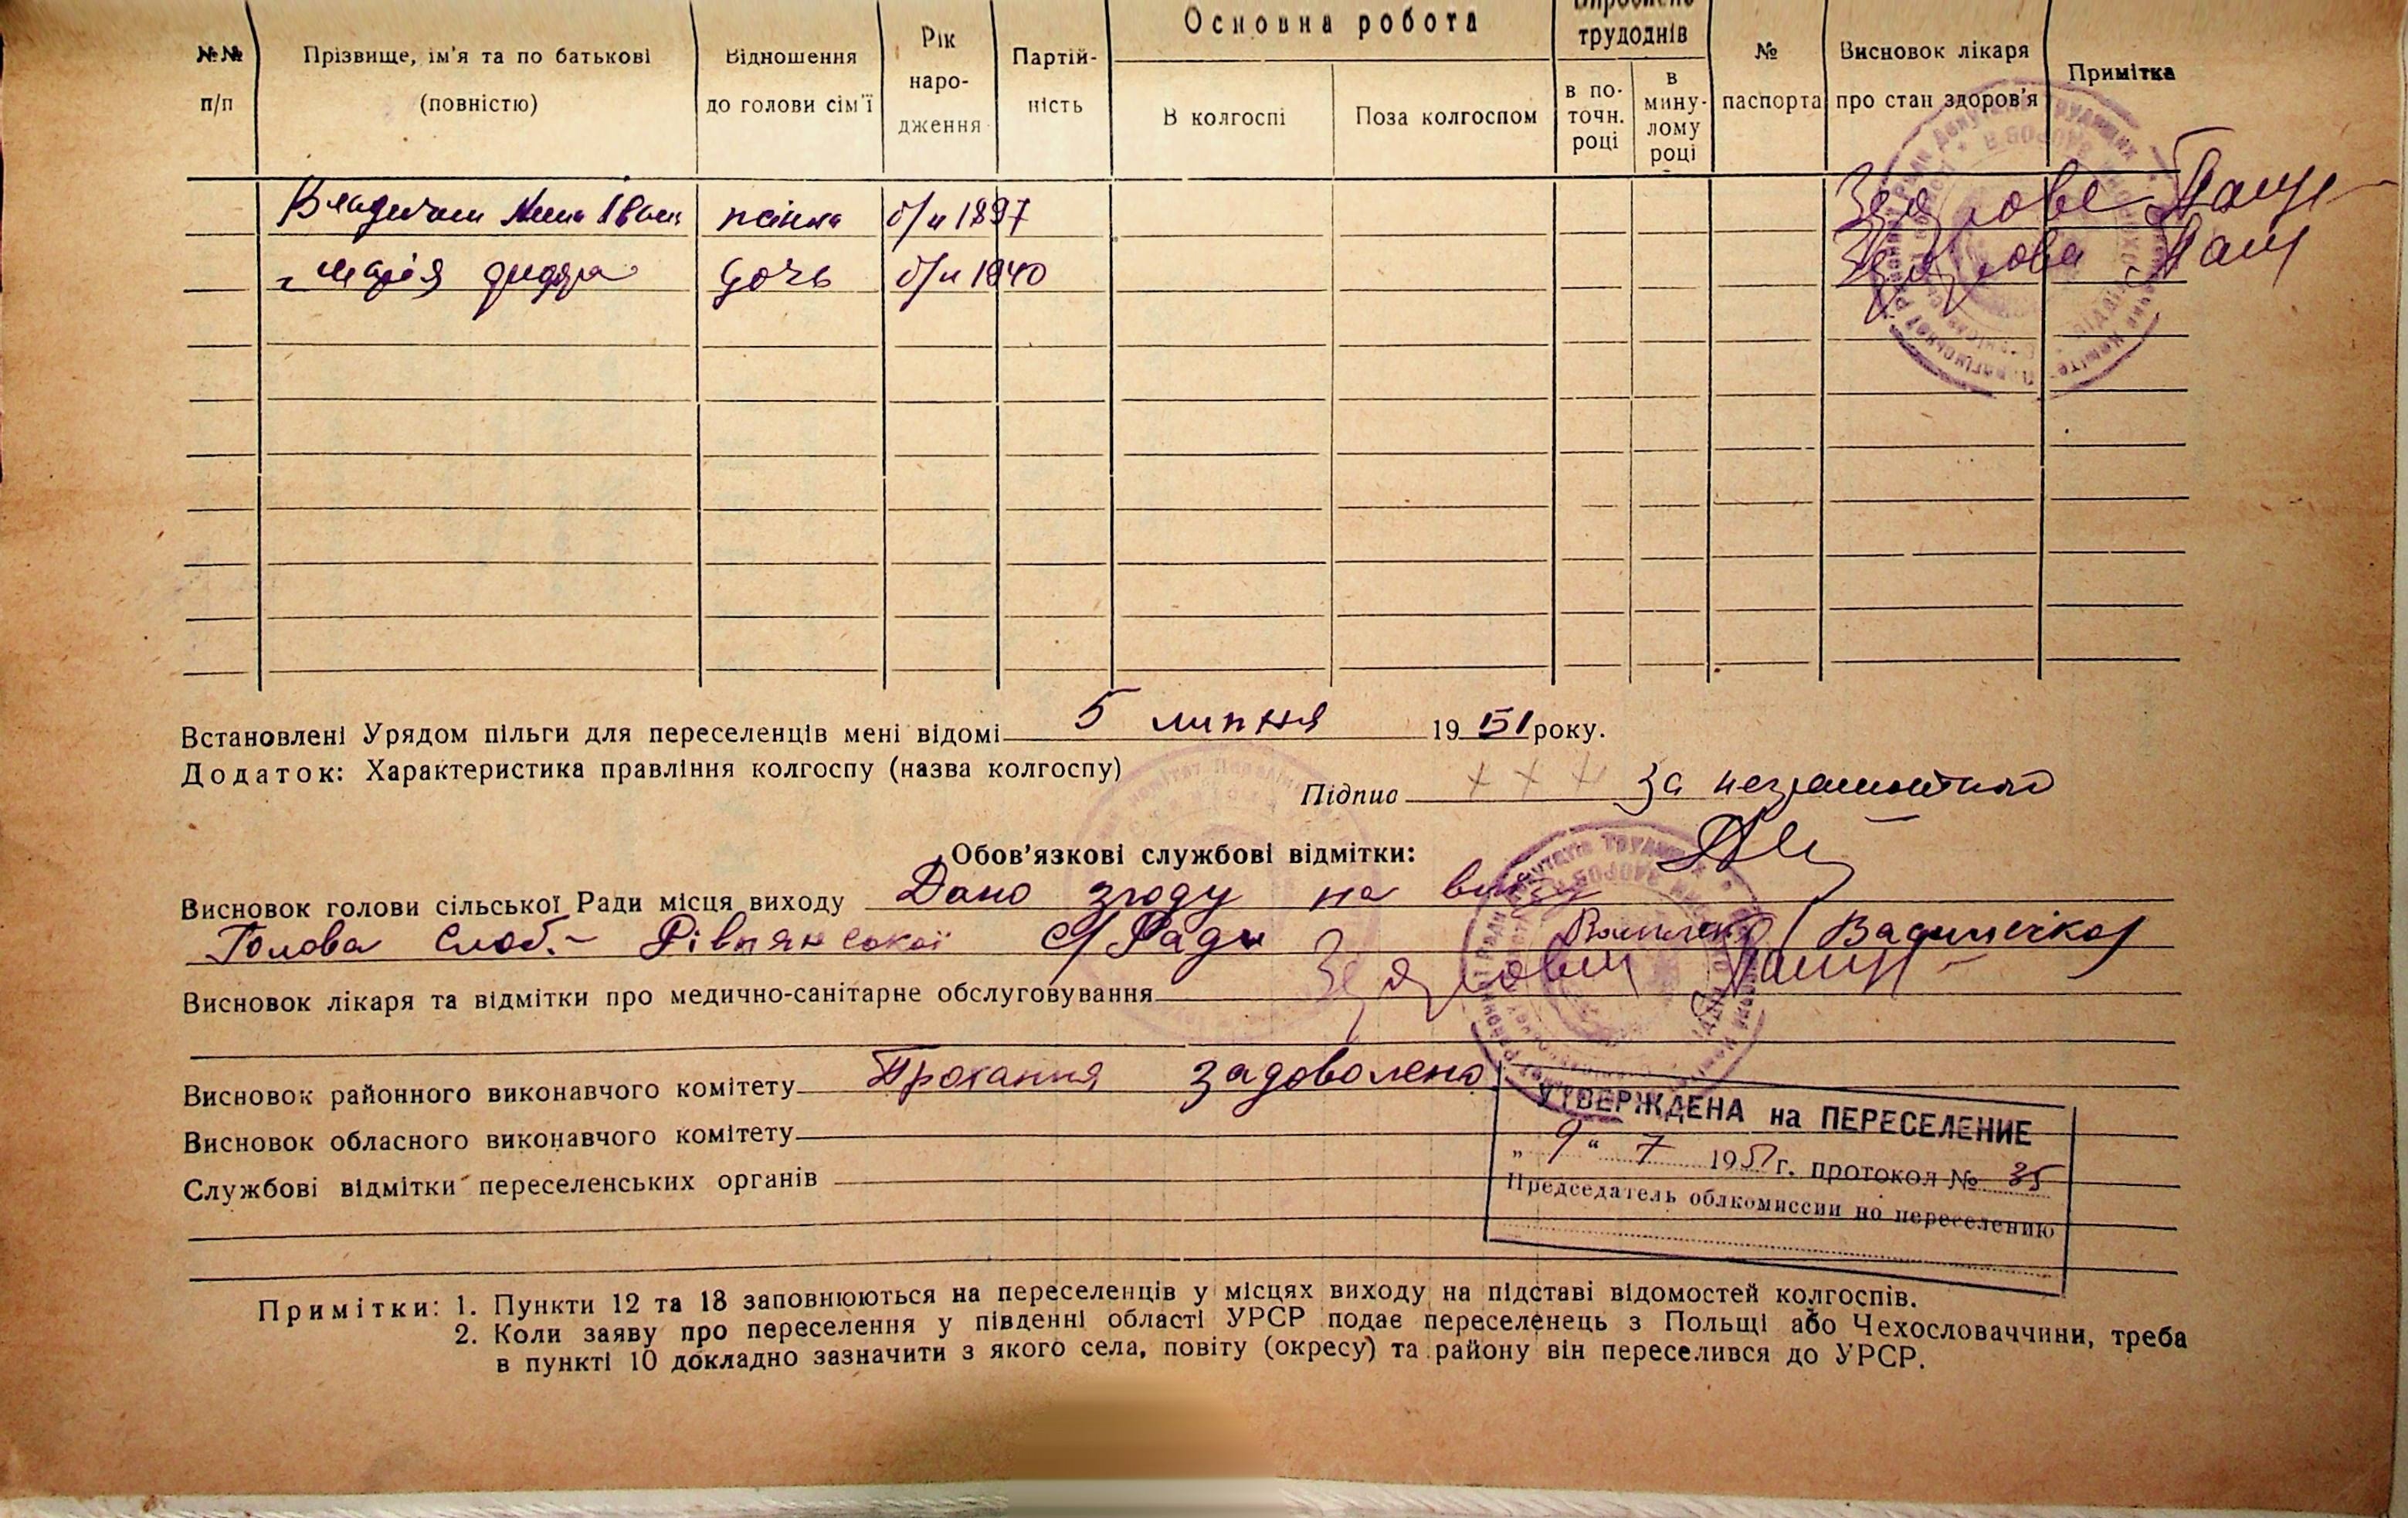 №№ п/п
Прізвище, ім'я та по батькові (повністю)
Відношення до голови сім'ї
Рік народження
Партійність
Основна робота
В колгоспі
Поза колгоспом
Вироблено трудоднів
в поточн. році
в минулому році
№ паспорта
Висновок лікаря про стан здоров'я
Примітка
б/п 1897
Марія дочь б/п 1940
Встановлені Урядом пільги для переселенців мені відомі 5 липня 1951 року.
Додаток: Характеристика правління колгоспу (назва колгоспу)
Підпис + + + за
Обов'язкові службові відмітки:
Висновок голови сільської Ради місця виходу Дано згоду на виїзд
Голова Слоб.- Рівнянської с/Ради
Висновок лікаря та відмітки про медично-санітарне обслуговування
Висновок районного виконавчого комітету Прохання задоволено
Висновок обласного виконавчого комітету
Службові відмітки переселенських органів
УТВЕРЖДЕНА на ПЕРЕСЕЛЕНИЕ
„ 9 “ 7 1951 г. протокол № 35
Председатель облкомиссии по переселению
Примітки: 1. Пункти 12 та 18 заповнюються на переселенців у місцях виходу на підставі відомостей колгоспів.
2. Коли заяву про переселення у південні області УРСР подає переселенець з Польщі або Чехословаччини, треба
в пункті 10 докладно зазначити з якого села, повіту (окресу) та району він переселився до УРСР.